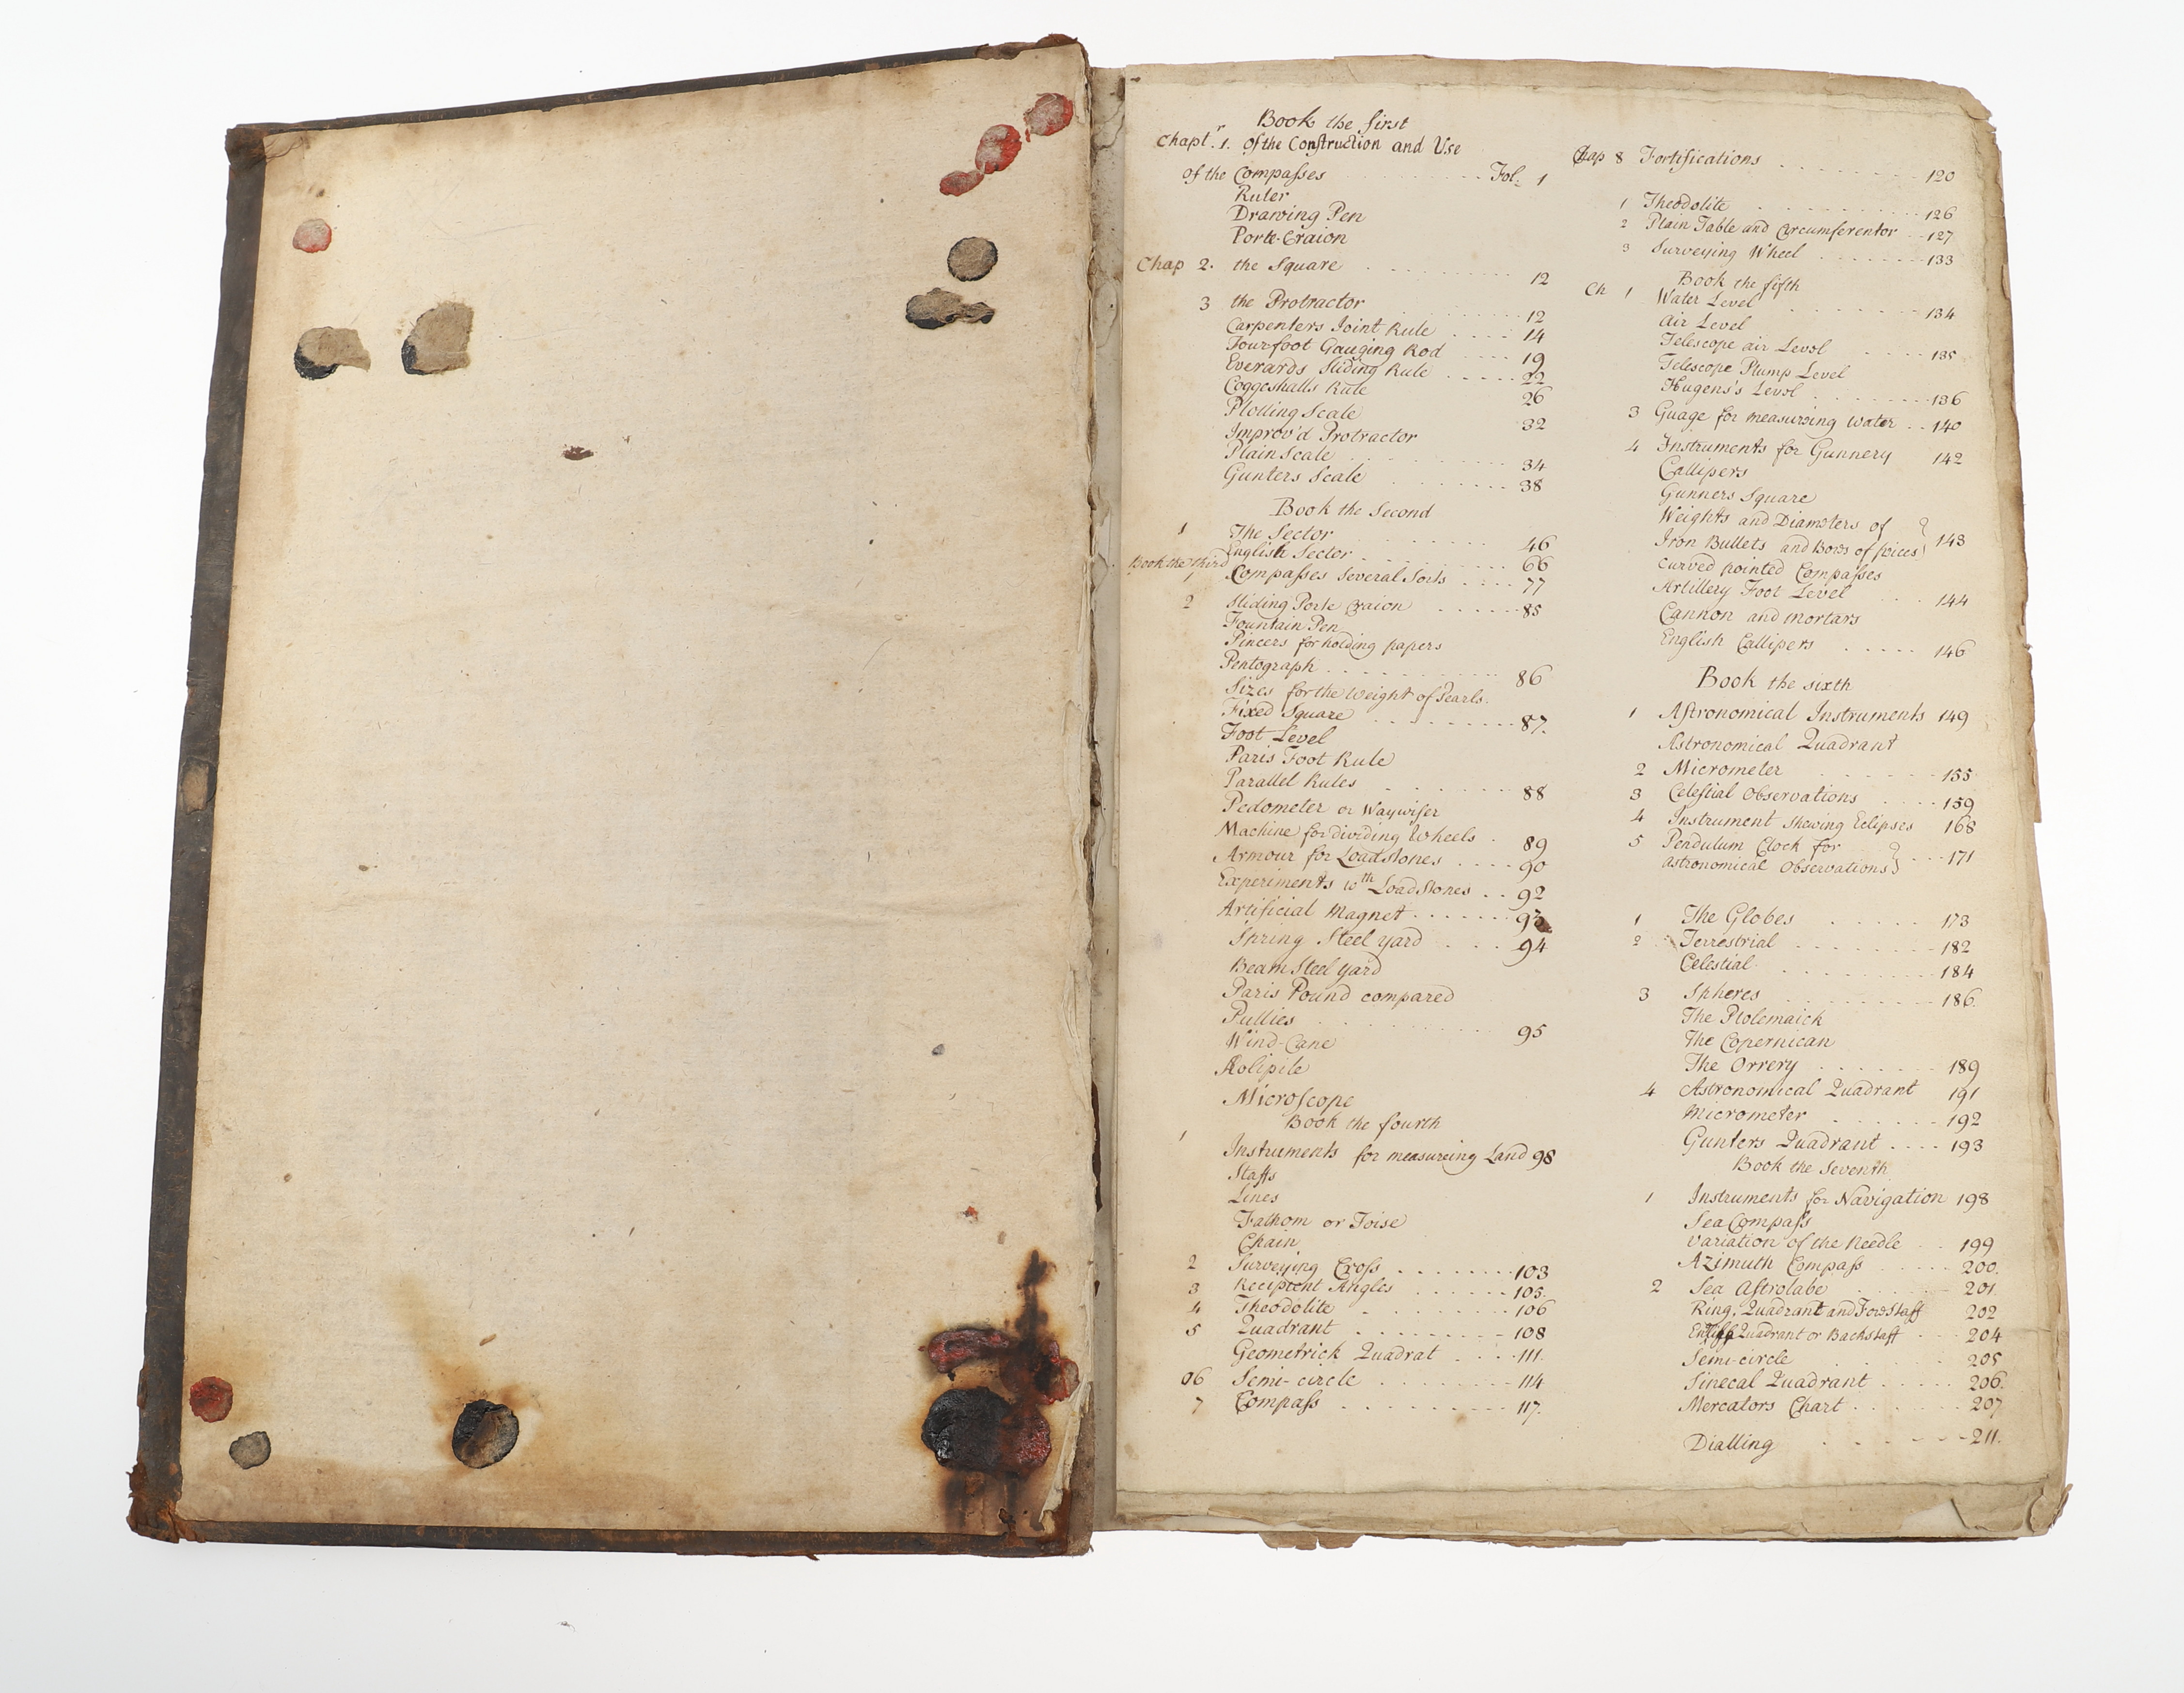 Book the first
Chapt.r 1. Of the Construction and Use
of the Compasses Fol. 1
Ruler
Drawing Pen
Porte-Craion
Chap 2. the Square 12
3 the Protractor 12
Carpenters Joint Rule 14
Fourfoot Gauging Rod 19
Everards Sliding Rule 22
Coggeshalls Rule 26
Plotting Scale 32
Improv'd Protractor
Plain Scale 34
Gunters Scale 38
Book the Second
1 The Sector 46
English Sector 66
Book the third
1 Compasses several Sorts 77
2 Sliding Porte Craion 85
Fountain Pen
Pincers for holding papers
Pentograph 86
Sizes for the Weight of Pearls.
Fixed Square 87.
Foot Level
Paris Foot Rule
Parallel Rules 88
Pedometer or Waywiser
Machine for dividing Wheels 89
Armour for Loadstones 90
Experiments wth LoadStones 92
Artificial Magnet 93
Spring Steel yard 94
Beam Steel yard
Paris Pound compared
Pullies 95
Wind-Cane
Æolipile
Microscope
Book the fourth
1 Instruments for measureing Land 98
Staffs
Lines
Fathom or Toise
Chain
2 Surveying Cross 103
3 Recipient Angles 105.
4 Theodolite 106
5 Quadrant 108
Geometrick Quadrat 111.
06 Semi-circle 114
7 Compass 117.
Chap 8 Fortifications 120
1 Theodolite 126
2 Plain Table and Circumferentor 127
3 Surveying Wheel 133
Book the fifth
Ch 1 Water Level 134
Air Level
Telescope air Level 135
Telescope Plump Level
Hugens's Level 136
3 Guage for measuring water 140
4 Instruments for Gunnery 142
Callipers
Gunners Square
Weights and Diameters of
Iron Bullets and Bores of pieces 143
curved pointed Compasses
Artillery Foot Level 144
Cannon and mortars
English Callipers 146
Book the sixth
1 Astronomical Instruments 149
Astronomical Quadrant
2 Micrometer 155
3 Celestial Observations 159
4 Instrument shewing Eclipses 168
5 Pendulum Clock for
astronomical Observations 171
1 The Globes 173
2 Terrestrial 182
Celestial 184
3 Spheres 186.
The Ptolemaick
The Copernican
The Orrery 189
4 Astronomical Quadrant 191
Micrometer 192
Gunters Quadrant 193
Book the Seventh
1 Instruments for Navigation 198
Sea Compass
variation of the Needle 199
Azimuth Compass 200.
2 Sea Astrolabe 201
Ring, Quadrant and ForeStaff 202
Quadrant or Backstaff 204
Semi-circle 205
Sinecal Quadrant 206.
Mercators Chart 207
Dialling 211.